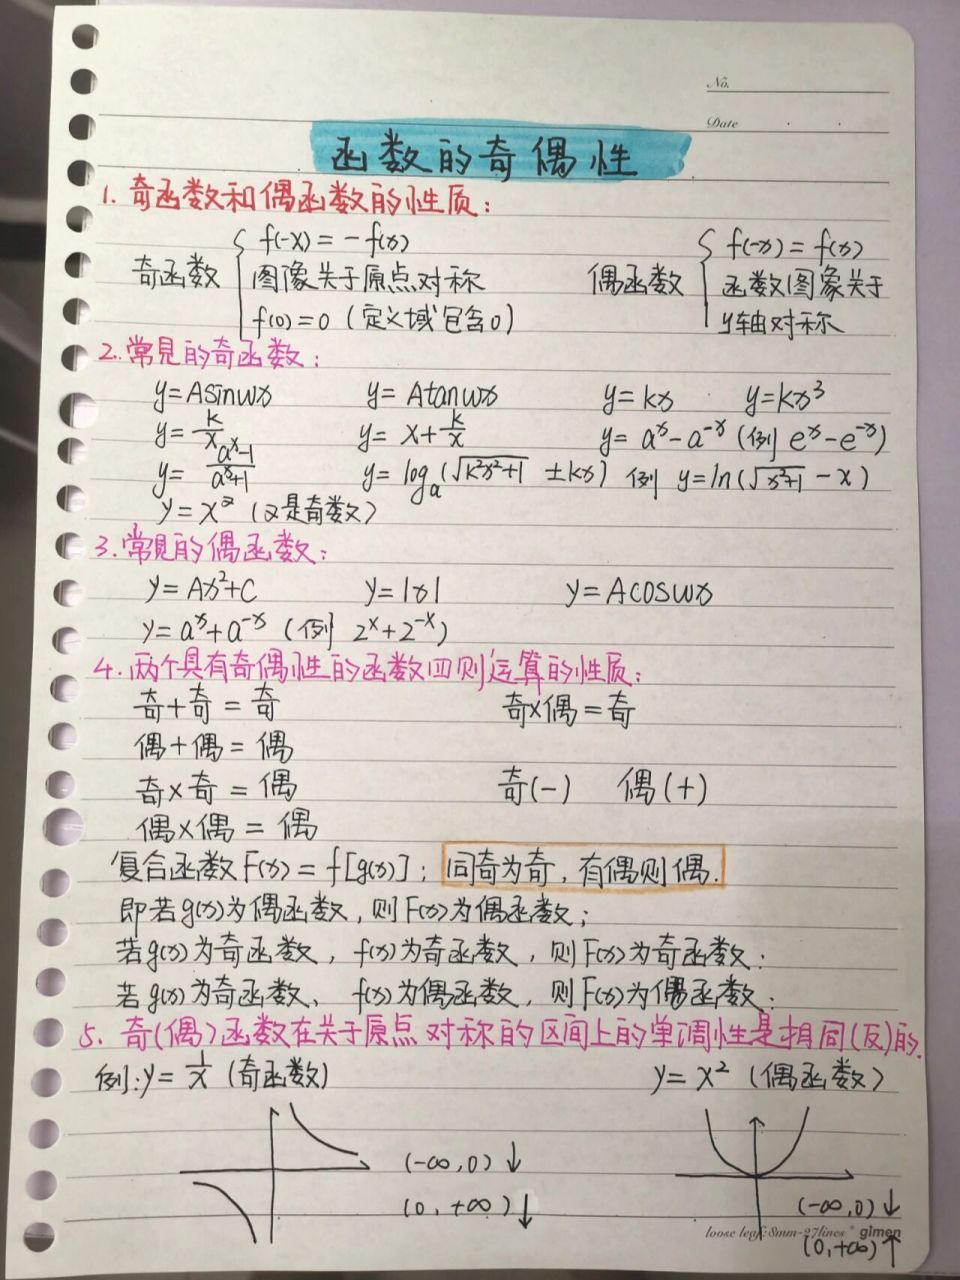 No.
Date
函数的奇偶性
1. 奇函数和偶函数的性质:
奇函数 { f(-x) = -f(x)
图像关于原点对称
f(0)=0 (定义域包含0)
偶函数 { f(-x) = f(x)
函数图像关于
y轴对称
2. 常见的奇函数:
y=Asinωx y=Atanωx y=kx y=kx³
y=k/x y=x+k/x y=a^x-a^-x (例 e^x-e^-x)
y=(a^x-1)/(a^x+1) y=log_a(√(k²x²+1) ±kx) 例 y=ln(√(x²+1) -x)
y=x^α (α是奇数)
3. 常见的偶函数:
y=Ax²+C y=|x| y=Acosωx
y=a^x+a^-x (例 2^x+2^-x)
4. 两个具有奇偶性的函数四则运算的性质:
奇+奇=奇 奇×偶=奇
偶+偶=偶
奇×奇=偶 奇(-) 偶(+)
偶×偶=偶
复合函数F(x)=f[g(x)]; 同奇为奇,有偶则偶.
即若g(x)为偶函数,则F(x)为偶函数;
若g(x)为奇函数, f(x)为奇函数, 则F(x)为奇函数;
若g(x)为奇函数、 f(x)为偶函数, 则F(x)为偶函数;
5. 奇(偶)函数在关于原点对称的区间上的单调性是相同(反)的.
例: y=1/x (奇函数) y=x² (偶函数)
(-∞,0) ↓
(0, +∞) ↓
(-∞,0) ↓
loose leaf: 8mm-27lines gimen
(0,+∞) ↑